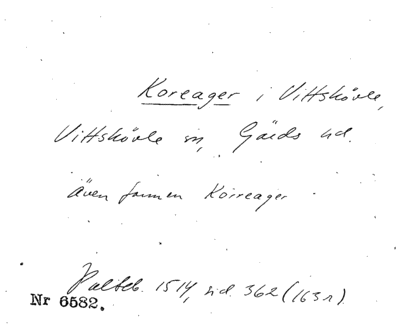 Koreager i Vittskövle,
Vittskövle sn, Gärds hd.
även formen Korreager
Palteb. 1514, sid. 362 (163r).
Nr 6582.